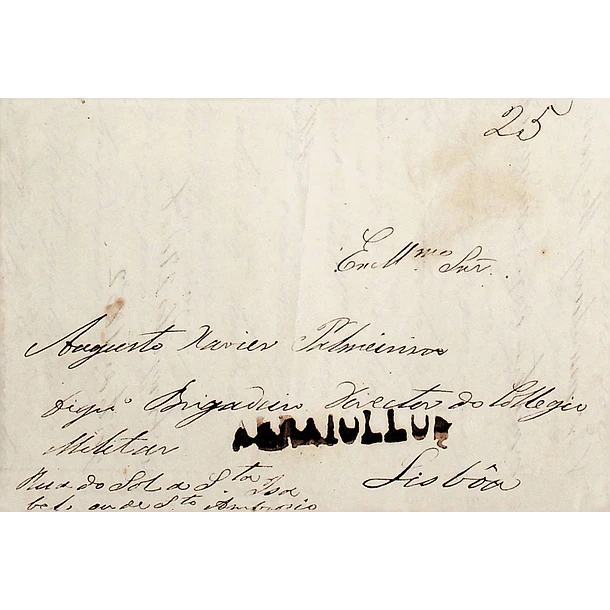 25
Exm.mo Snr.
Augusto Xavier Palmeirim
Digno Brigadeiro Director do Collegio
Militar
ARRAIOLLOS
Lisbôa
Rua do Sol a S.ta Isa
bel, ou de S.to Ambrosio